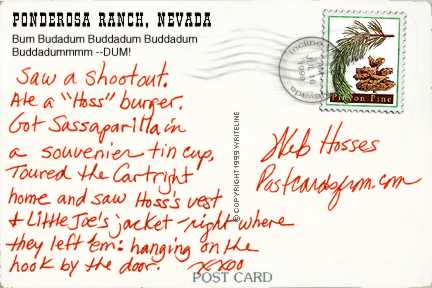 PONDEROSA RANCH, NEVADA
Bum Budadum Buddadum Buddadum
Buddadummmm --DUM!
Saw a shootout.
Ate a "Hoss" burger.
Got Sassaparilla in
a souvenier tin cup.
Toured the Cartright
home and saw Hoss's vest
& Little Joe's jacket - right where
they left 'em: hanging on the
hook by the door. xxoo
© COPYRIGHT 1999 WRITELINE
POST CARD
Incline
1999
Nevada
Pinyon Pine
Web Hosses
Postcardsfrom.com